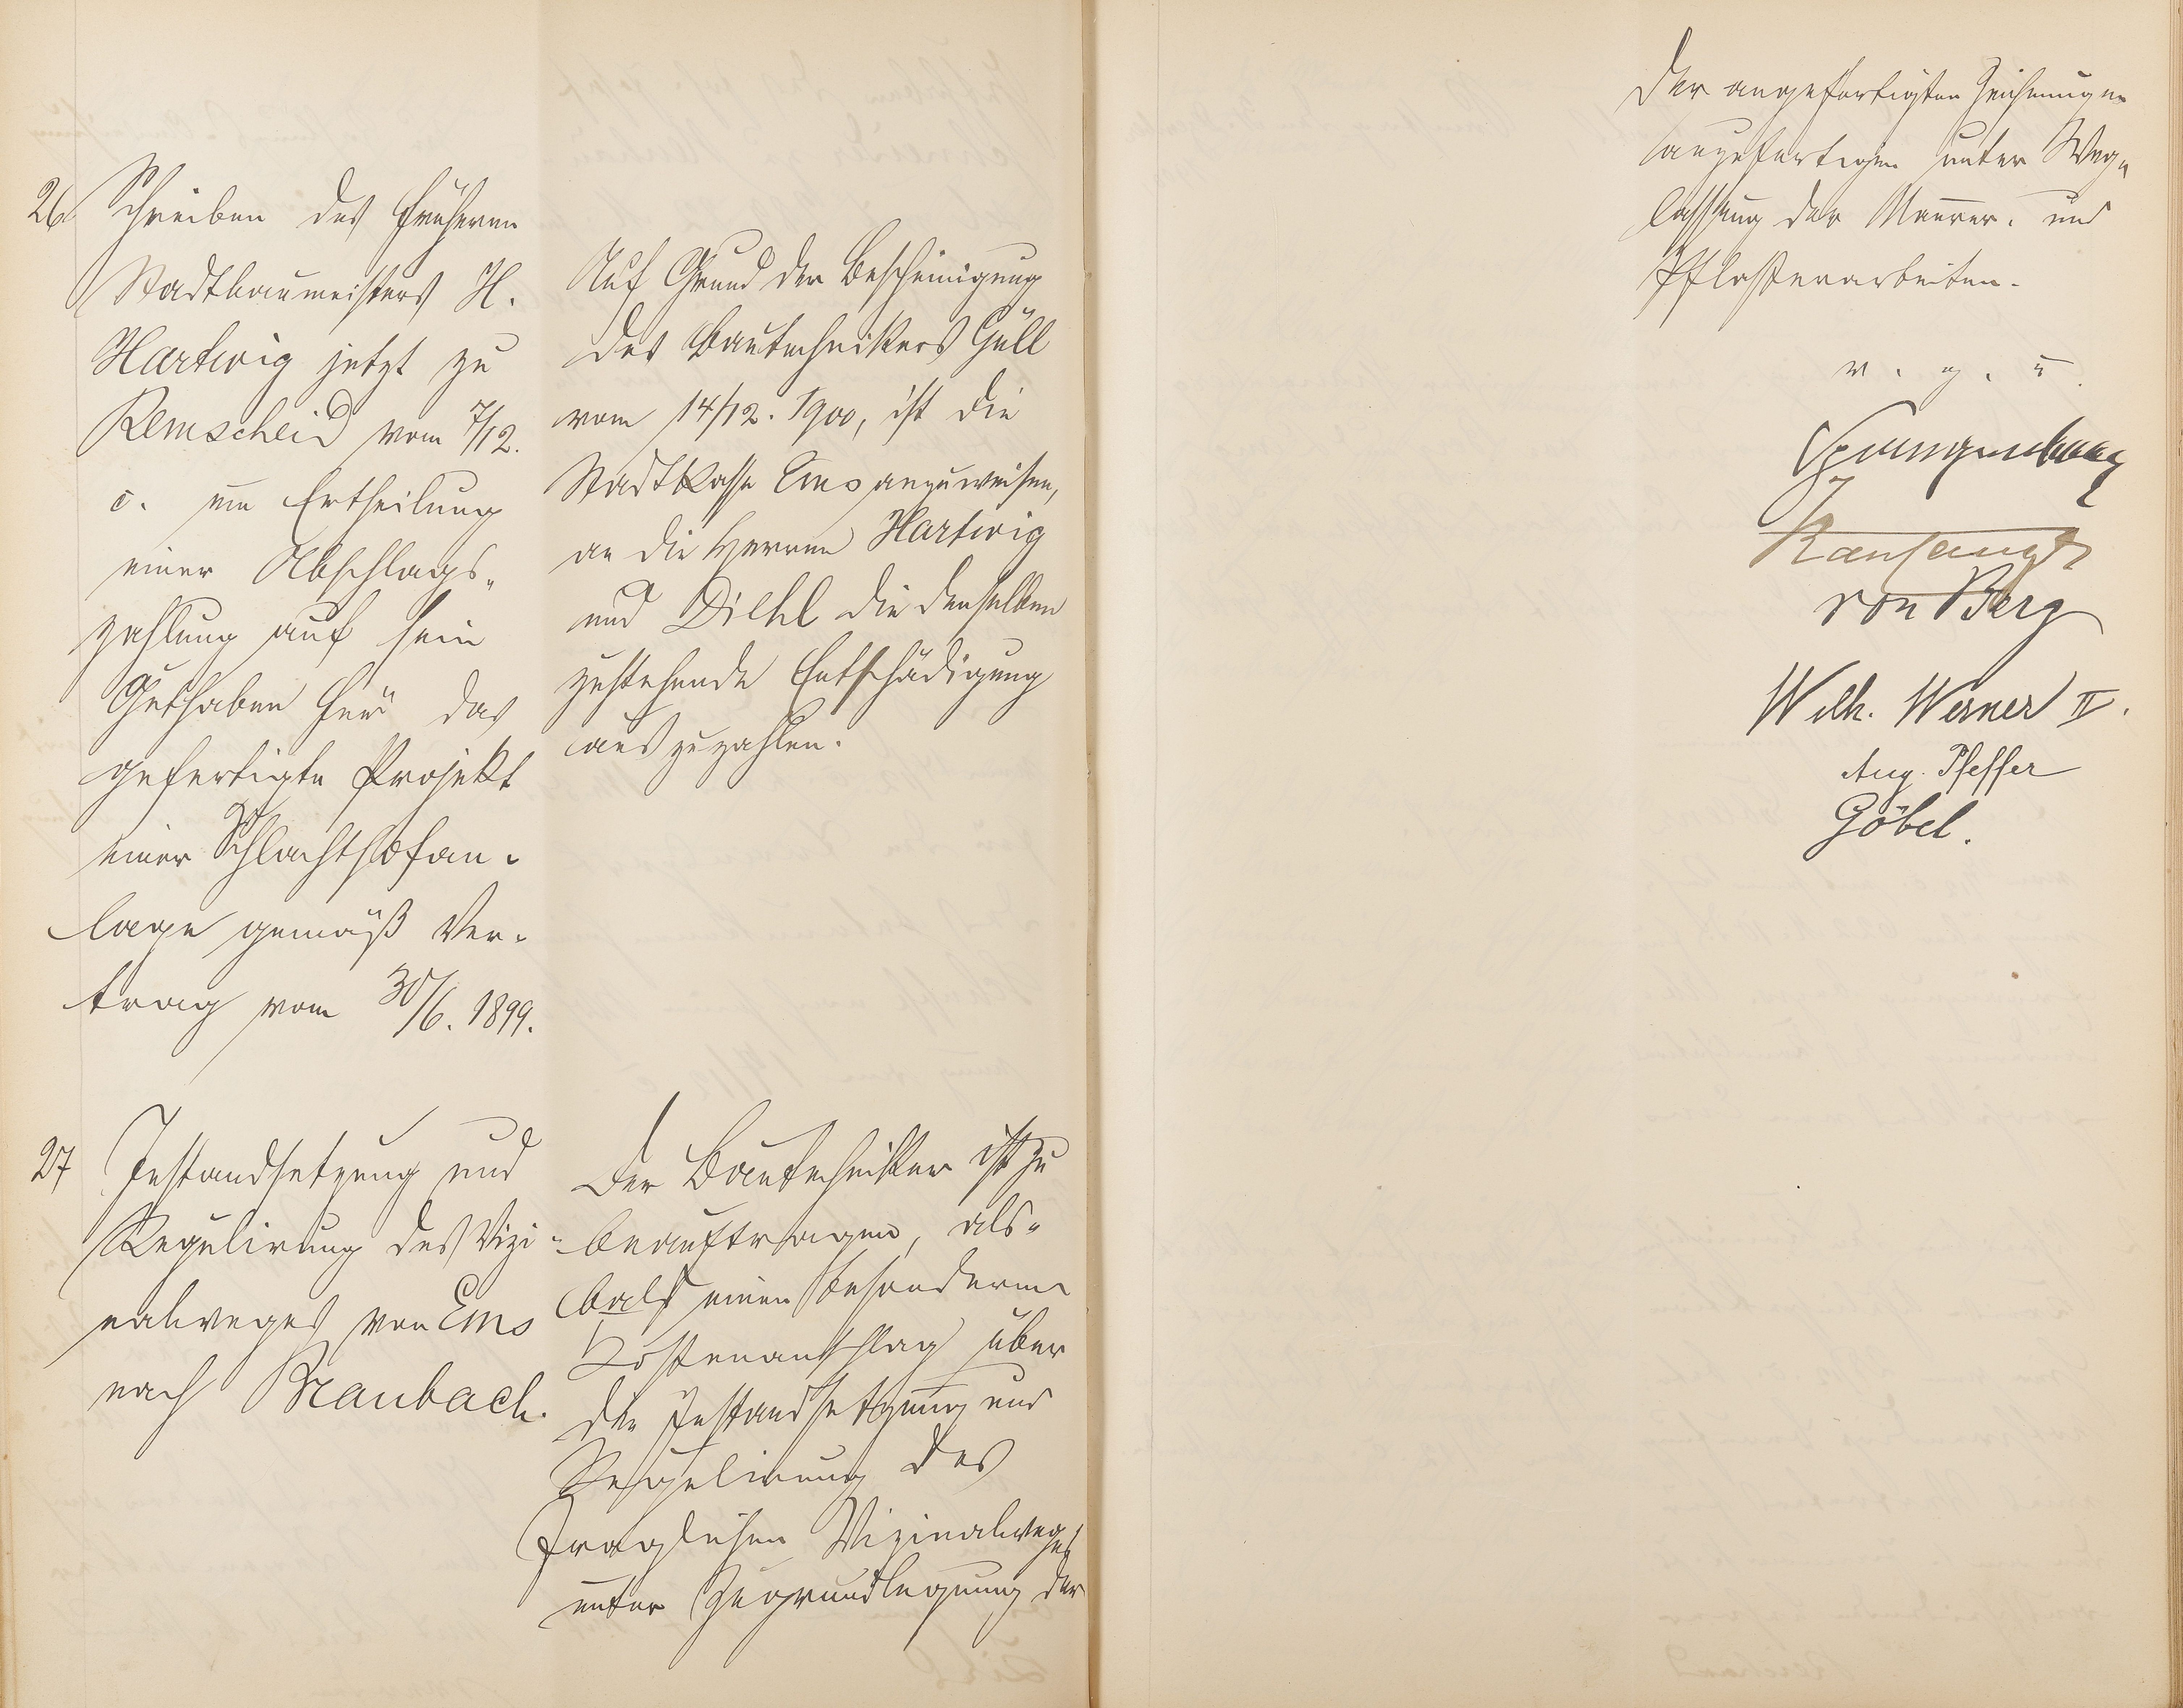 26 Schreiben des früheren
Stadtbaumeisters H.
Hartwig jetzt zu
Remscheid vom 7/12.
c. um Ertheilung
einer Abschlags-
zahlung auf sein
Guthaben für das
gefertigte Projekt
einer Schlachthofan-
lage gemäß Ver-
trag vom 30/6. 1899.
Auf Grund der Bescheinigung
des Bautechnikers Güll
vom 14/12. 1900, ist die
Stadtkasse Ems anzuweisen,
an die Herren Hartwig
und Diehl die denselben
zustehende Entschädigung
auszuzahlen.
27 Instandsetzung und
Regulirung des Vizi-
nalweges von Ems
nach Braubach.
Der Bautechniker ist zu
beauftragen, als-
bald einen besonderen
Kostenanschlag über
die Instandsetzung und
Regulirung des
fraglichen Vizinalweges
unter Zugrundlegung der
der angefertigten Zeichnungen
anzufertigen unter Weg-
lassung der Maurer- und
Pflasterarbeiten.
v. g. u.
Spangenberg
von Berg
Wilh. Werner II.
Aug. Pfeffer
Göbel.